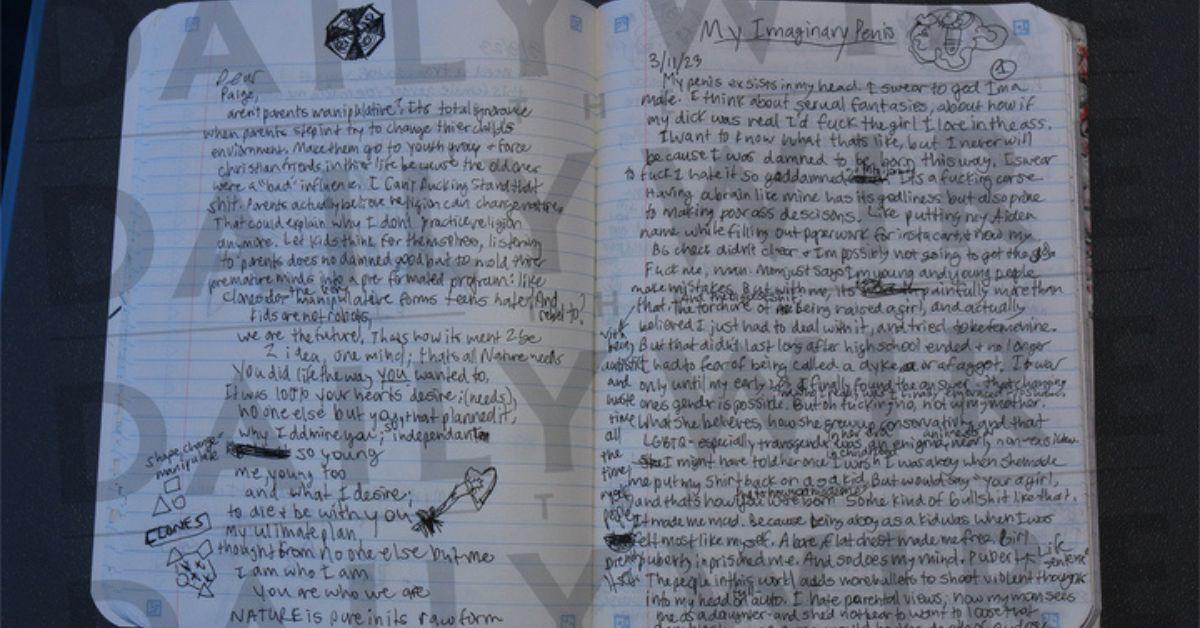 DAILY WIRE
Dear
Paige,
aren't parents manipulative? Its total ignorance
when parents step in t try to change thier childs
enviornment. Make them go to youth group + force
christian friends in thier life because the old ones
were a "bad" influence. I can't fucking stand that
shit. Parents actually believe religion can change nature.
That could explain why I don't practice religion
anymore. Let kids think for themselves, listening
to parents does no damned good but to mold thier
premature minds into a pre formated program: like
clones do. manipulative forms teens hate (And
rebel to?
kids are not robots,
we are the future, Thus how its ment 2 be
2 idea, one mind; thats all Nature needs
You did life the way you wanted to,
It was 100% your hearts desire; (needs),
no one else but you that planned it,
why I addmire you; so independant
so young
me, young too
and what I desire;
to die + be with you
My ultimate plan,
thought from no one else but me
I am who I am
You are who we are
NATURE is pure in its raw form
shape, change
manipulate
CLONES
My Imaginary Penis
3/11/23
1
My penis exsists in my head. I swear to god I'm a
male. I think about sexual fantasies, about how if
my dick was real I'd fuck the girl I love in the ass.
I want to know what thats like, but I never will
because I was damned to be born this way. I swear
to fuck I hate it so goddamned Its a fucking corse
Having a brain like mine has its godliness but also prone
to making poor ass descisons. Like putting my Aiden
name while filling out paperwork for instacart, + now my
BG check didn't clear + I'm possibly not going to get the job
Fuck me, man. Mom just says I'm young and young people
make mistakes. But with me, its painfully more than
that. The torchure of being raised a girl, and actually
believed I just had to deal with it, and tried to be feminine.
But that didn't last long after high school ended + no longer
I had to fear of being called a dyke or a faggot. It was
only until my early 20s I finally found the answer - that changing
ones gender is possible. But oh fucking no, not w/ my mother.
What she believes, how she grew up conservatively and that
LGBTQ - especially transgender was an enigma, nearly non-existent
I might have told her once I wish I was a boy when she made
me put my shirt back on as a kid. But would say "your a girl,
and thats how you were born" some kind of bullshit like that.
It made me mad. Because being a boy as a kid was when I was
felt most like myself. A bare, flat chest made me free. Girl
puberty inprisoned me. And so does my mind. Puberty
Life sentence
The people in this world adds more bullets to shoot violent thoughts
into my head on auto. I hate parental views; how my mom sees
me as a daughter - and she'd not bear to want to loose that
being
autistic
and
waste
time
all
the
time